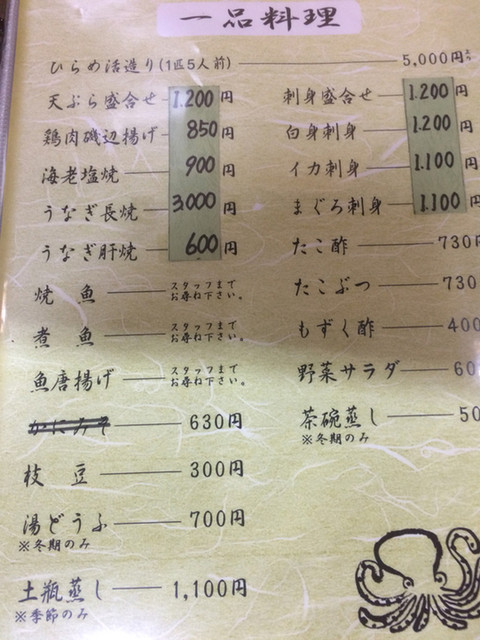 一品料理
ひらめ活造り(1匹5人前) 5,000円
天ぷら盛合せ 1.200円
鶏肉磯辺揚げ 850円
海老塩焼 900円
うなぎ長焼 3.000円
うなぎ肝焼 600円
焼魚 スタッフまでお尋ね下さい。
煮魚 スタッフまでお尋ね下さい。
魚唐揚げ スタッフまでお尋ね下さい。
かにみそ 630円
枝豆 300円
湯どうふ 700円
※冬期のみ
土瓶蒸し 1,100円
※季節のみ
刺身盛合せ 1.200円
白身刺身 1.200円
イカ刺身 1.100円
まぐろ刺身 1.100円
たこ酢 730円
たこぶつ 730
もずく酢 400
野菜サラダ 60
茶碗蒸し 50
※冬期のみ